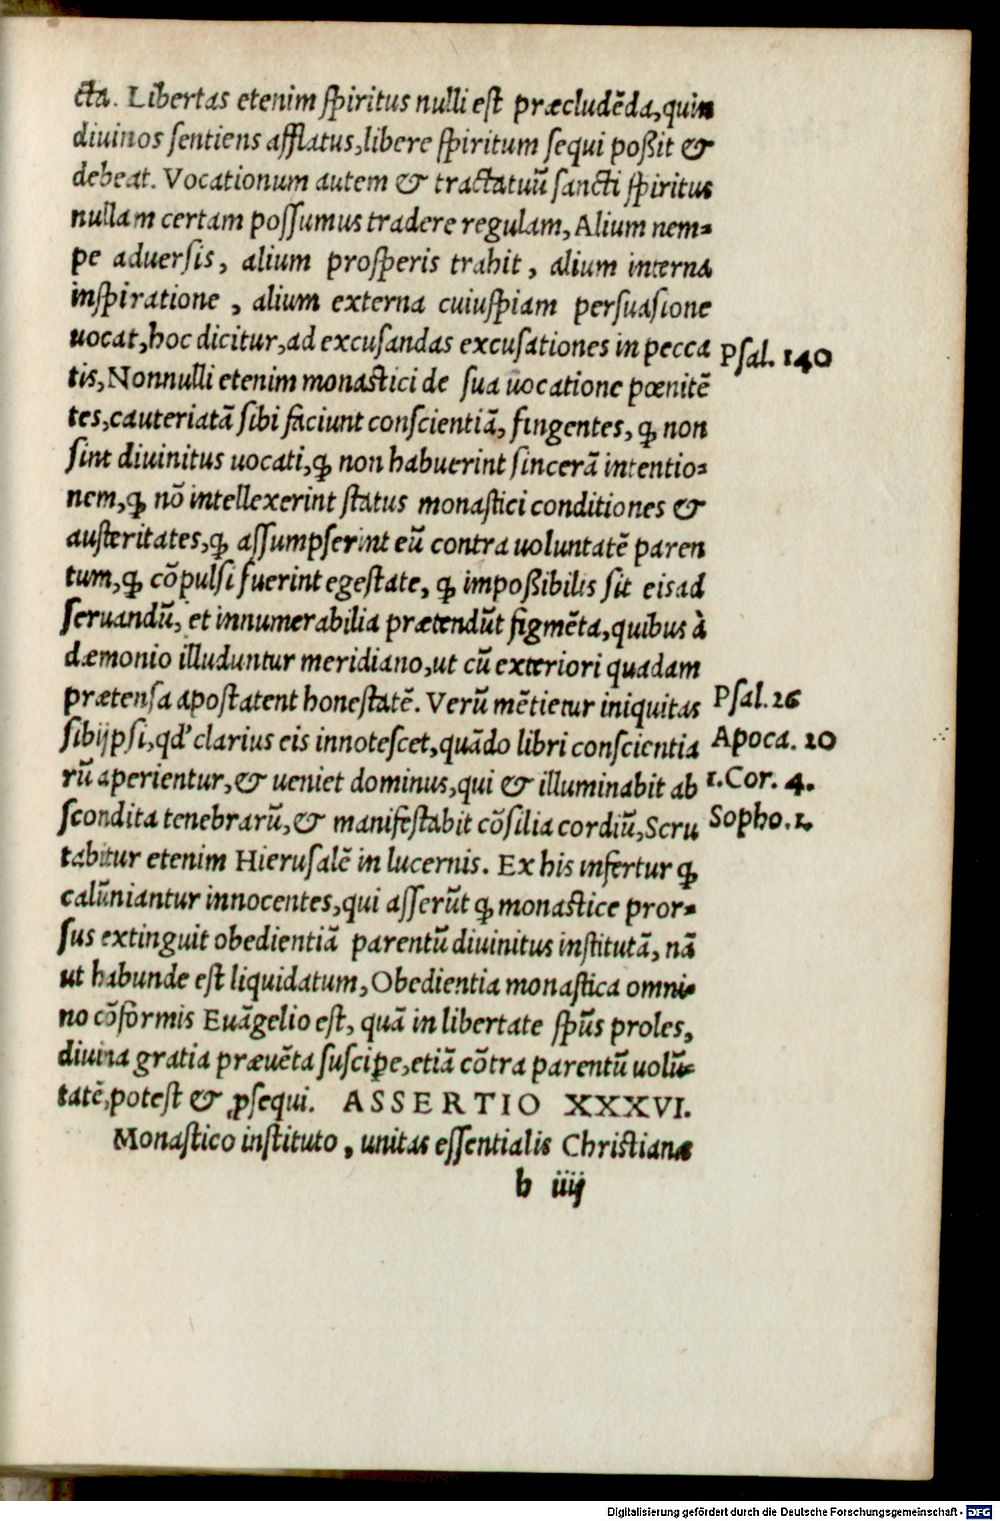 cta. Libertas etenim ſpiritus nulli eſt præcludēda, quin
diuinos ſentiens afflatus, libere ſpiritum ſequi poßit &
debeat. Vocationum autem & tractatuū ſancti ſpiritus
nullam certam poſſumus tradere regulam, Alium nem-
pe aduerſis, alium proſperis trahit, alium interna
inſpiratione, alium externa cuiuſpiam perſuaſione
uocat, hoc dicitur, ad excuſandas excuſationes in pecca
Pſal. 140
tis, Nonnulli etenim monastici de ſua uocatione pœnitē
tes, cauteriatā ſibi faciunt conſcientiā, fingentes, ꝙ non
ſint diuinitus uocati, ꝙ non habuerint ſincerā intentio-
nem, ꝙ nō intellexerint ſtatus monaſtici conditiones &
auſteritates, ꝙ aſſumpſerint eū contra uoluntatē paren
tum, ꝙ cōpulſi fuerint egeſtate, ꝙ impoßibilis ſit eis ad
ſeruandū, et innumerabilia prætendūt figmēta, quibus à
dæmonio illuduntur meridiano, ut cū exteriori quadam
prætenſa apoſtatent honeſtatē. Verū mētietur iniquitas
Pſal. 26
ſibijpſi, qd' clarius eis innoteſcet, quādo libri conſcientia
Apoca. 20
rū aperientur, & ueniet dominus, qui & illuminabit ab
1. Cor. 4.
ſcondita tenebrarū, & manifeſtabit cōſilia cordiū, Scru
Sopho. 1.
tabitur etenim Hieruſalē in lucernis. Ex his infertur ꝙ
calūniantur innocentes, qui aſſerūt ꝙ monastice pror-
ſus extinguit obedientiā parentū diuinitus inſtitutā, nā
ut habunde eſt liquidatum, Obedientia monaſtica omni-
no cōformis Euāgelio eſt, quā in libertate ſpūs proles,
diuina gratia præuēta ſuſcipe, etiā cōtra parentū uolū-
tatē, poteſt & ꝓſequi. ASSERTIO XXXVI.
Monaſtico inſtituto, unitas eſſentialis Chriſtianæ
b iiij
Digitalisierung gefördert durch die Deutsche Forschungsgemeinschaft - DFG